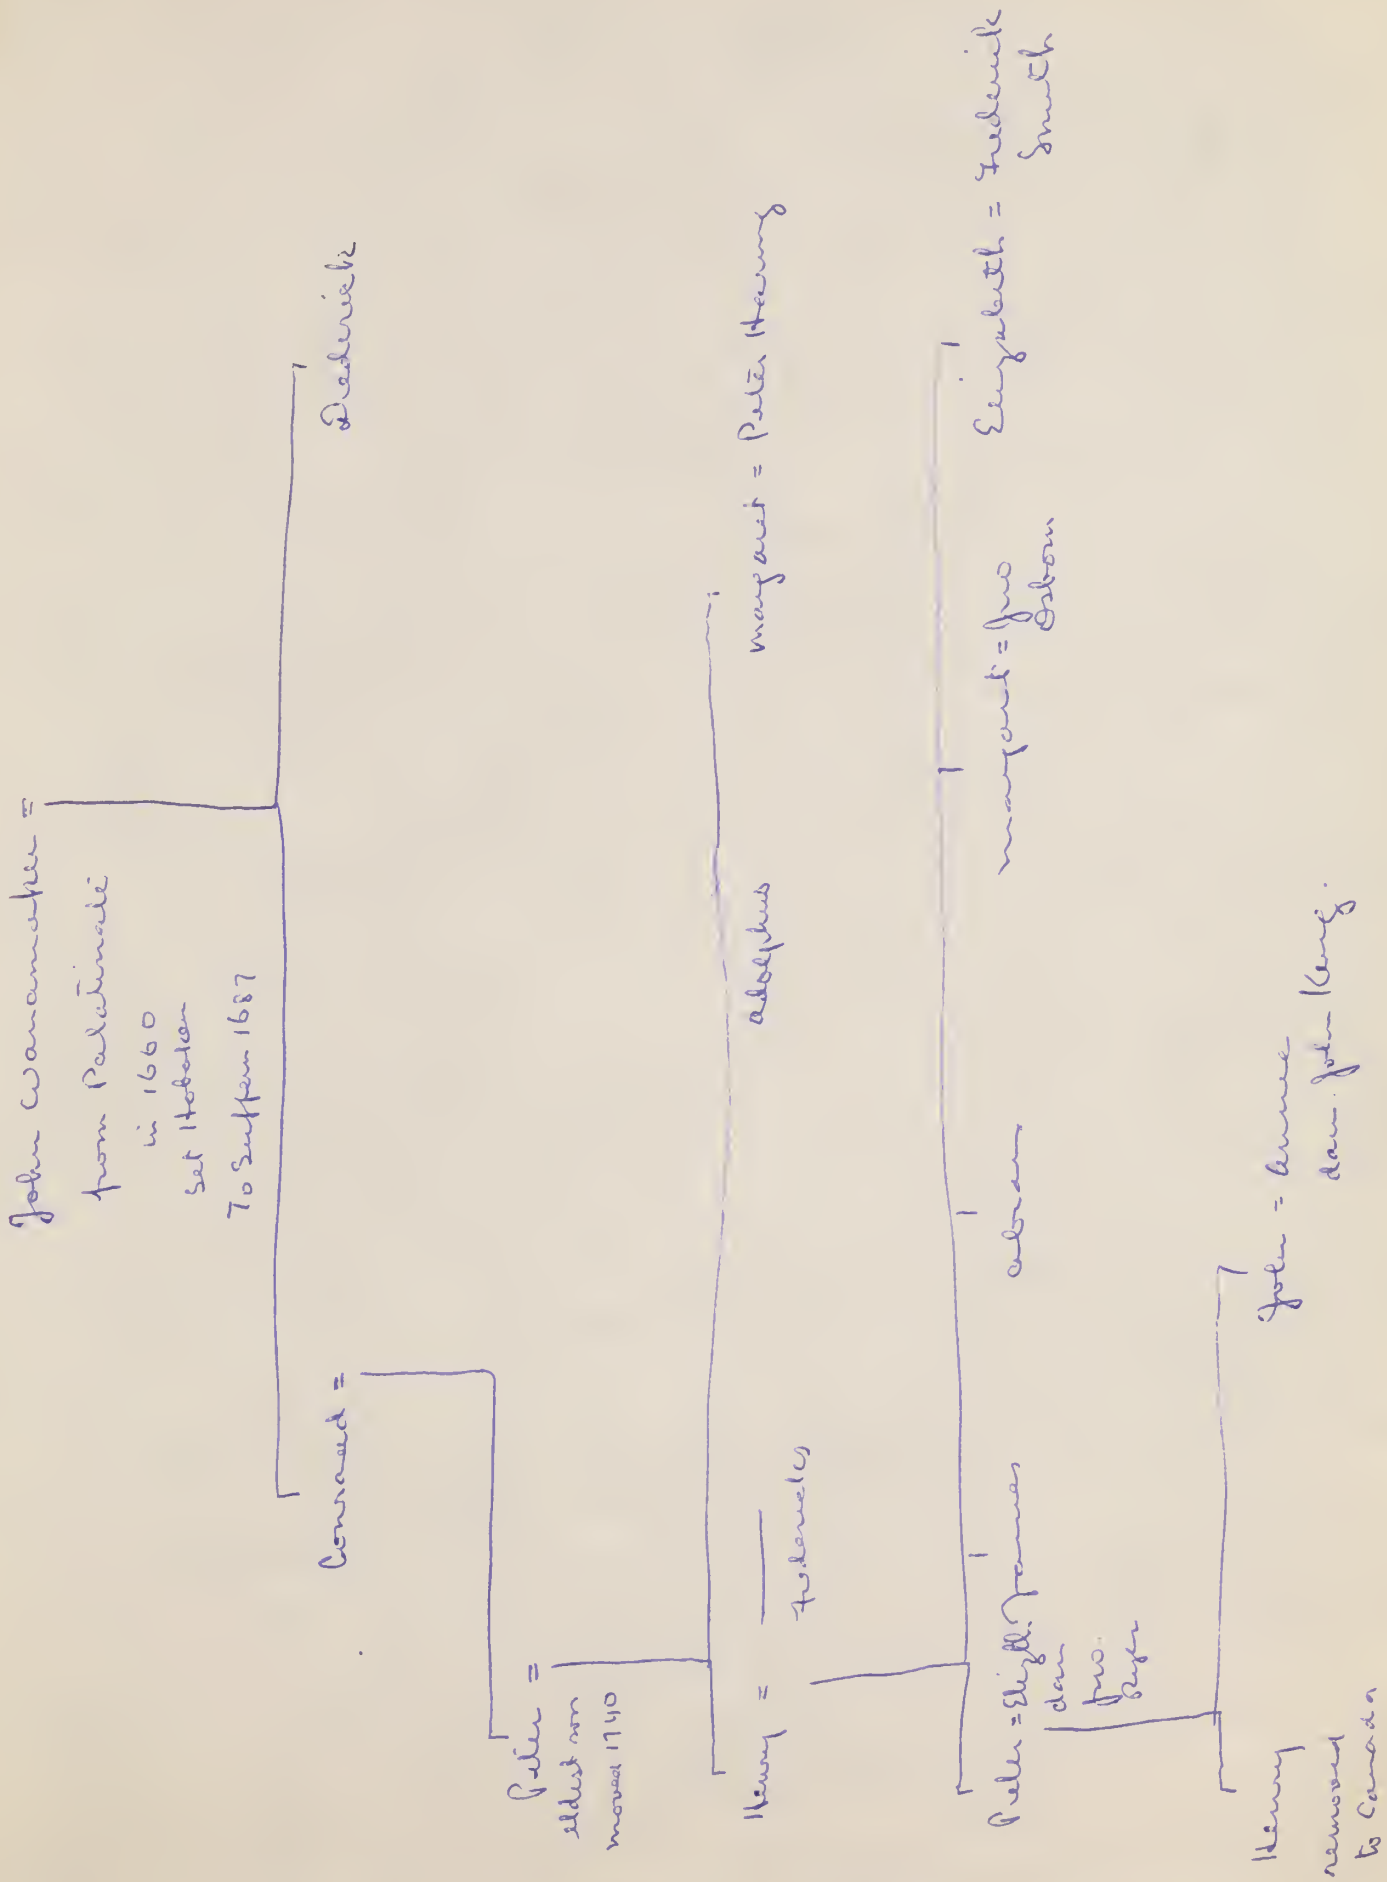 John Wanamaker =
from Palatinate
in 1660
Set Hoboken
To Suffern 1687
Conraed =
Dederick
Peter =
eldest son
moved 1740
Henry =
adolphus
margaret = Peter Haring
Peter = Elizth.
dau
Jno.
James
abram
margaret = Jno
Osborn
Elizabeth = Frederick
Smith
Henry
removed
to Canada
John = Annie
dau. John King.